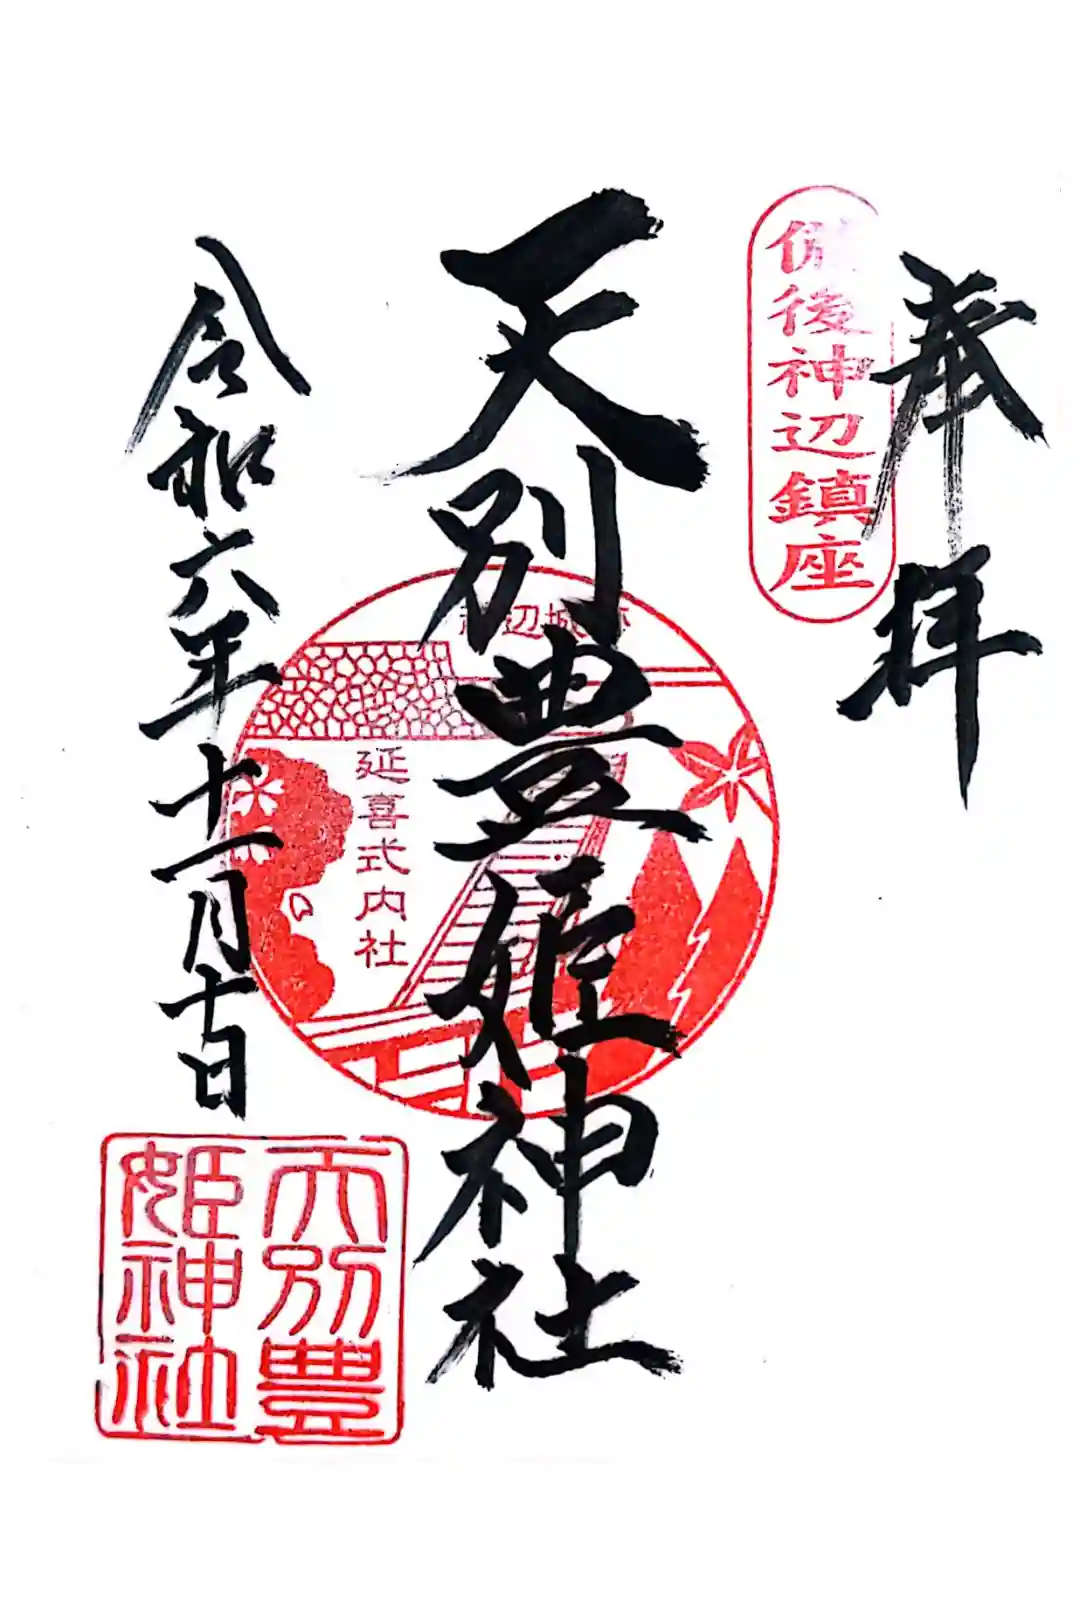 奉拝
備後神辺鎮座
天別豊姫神社
神辺城跡
延喜式内社
令和六年十一月十日
天別豊
姫神社